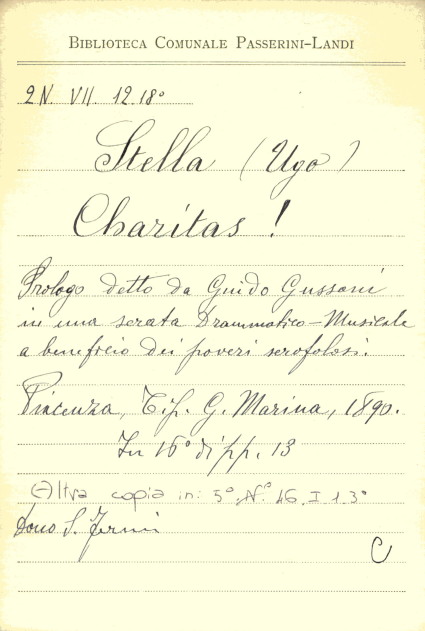 BIBLIOTECA COMUNALE PASSERINI-LANDI
2N. VII. 12.18°
Stella (Ugo)
Charitas!
Prologo detto da Guido Gussoni
in una serata Drammatico-Musicale
a beneficio dei poveri scrofolosi.
Piacenza, Tip. G. Marina, 1890.
In 16° di pp. 13
Altra copia in: 5° N° 46 I 1.3°
Dono S. Fermi
C